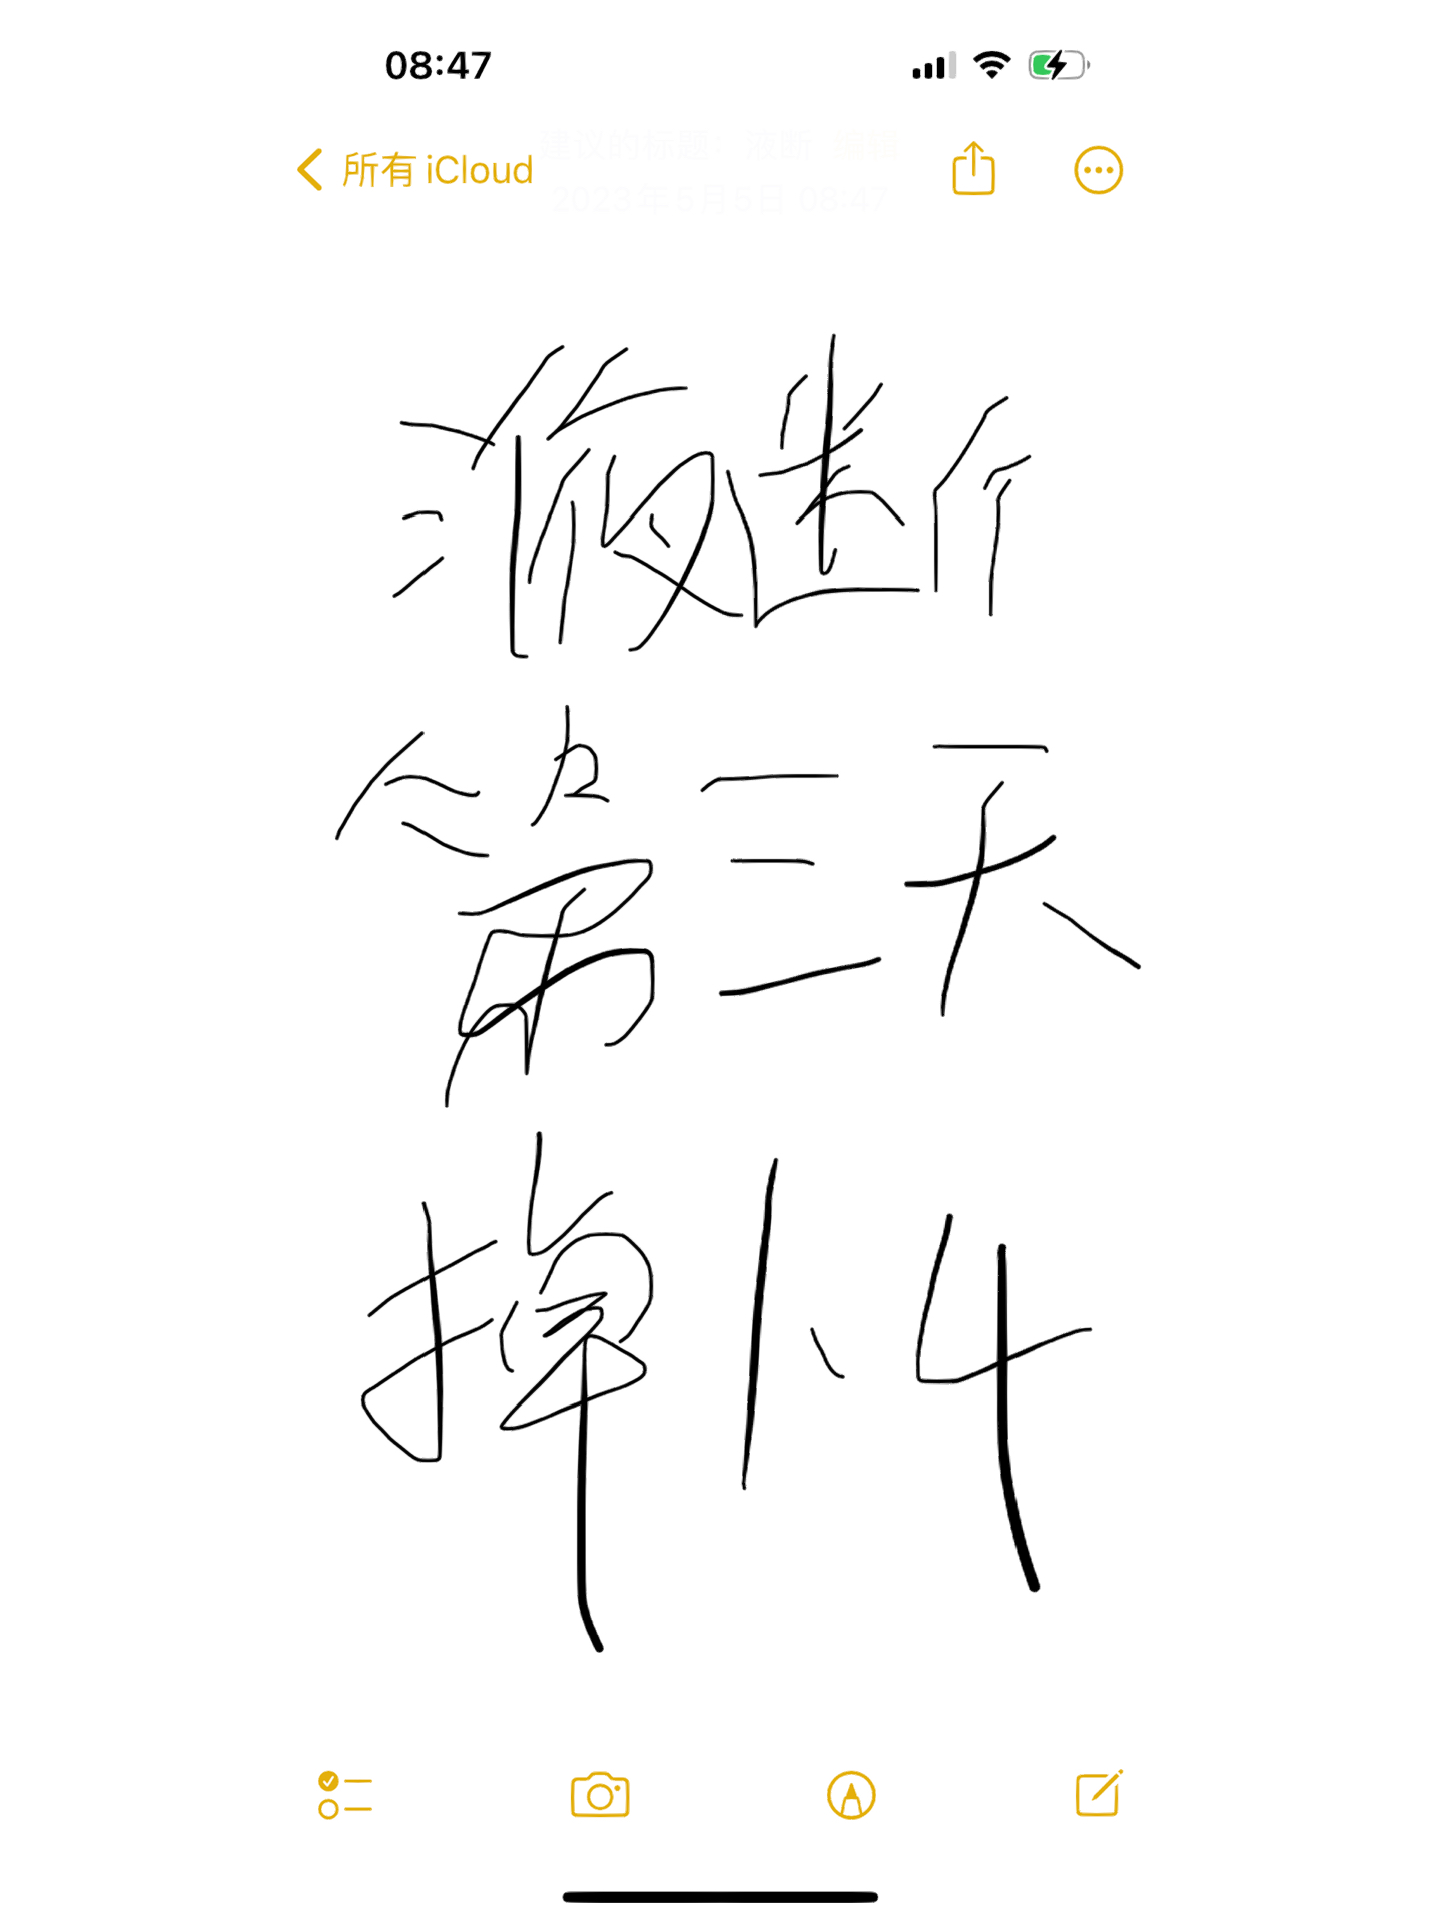 08:47
建议的标题：液断
所有 iCloud
2023年5月5日 08:47
液断
第三天
掉1、4